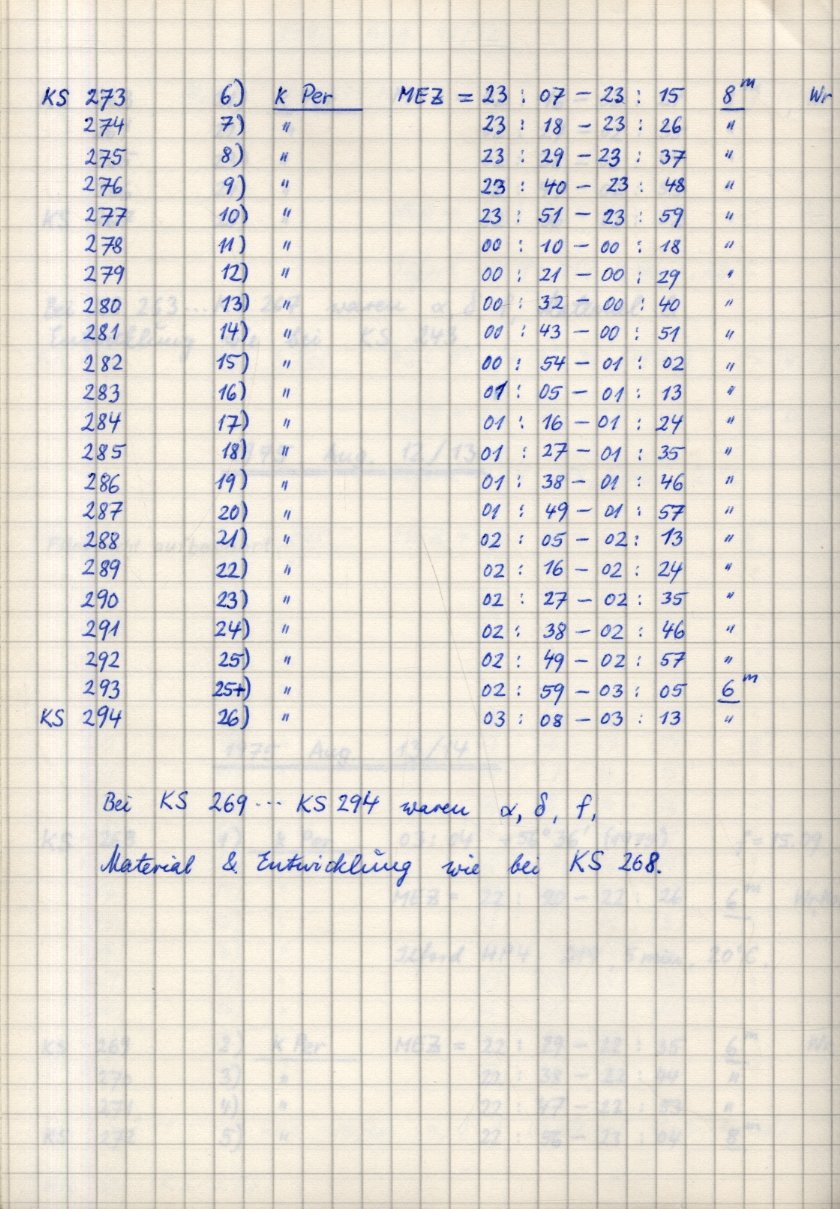 KS 273 6) K Per MEZ = 23 : 07 – 23 : 15 8ᵐ Wr
274 7) " 23 : 18 – 23 : 26 "
275 8) " 23 : 29 – 23 : 37 "
276 9) " 23 : 40 – 23 : 48 "
277 10) " 23 : 51 – 23 : 59 "
278 11) " 00 : 10 – 00 : 18 "
279 12) " 00 : 21 – 00 : 29 "
280 13) " 00 : 32 – 00 : 40 "
281 14) " 00 : 43 – 00 : 51 "
282 15) " 00 : 54 – 01 : 02 "
283 16) " 01 : 05 – 01 : 13 "
284 17) " 01 : 16 – 01 : 24 "
285 18) " 01 : 27 – 01 : 35 "
286 19) " 01 : 38 – 01 : 46 "
287 20) " 01 : 49 – 01 : 57 "
288 21) " 02 : 05 – 02 : 13 "
289 22) " 02 : 16 – 02 : 24 "
290 23) " 02 : 27 – 02 : 35 "
291 24) " 02 : 38 – 02 : 46 "
292 25) " 02 : 49 – 02 : 57 "
293 25+) " 02 : 59 – 03 : 05 6ᵐ
KS 294 26) " 03 : 08 – 03 : 13 "
Bei KS 269 ··· KS 294 waren α, δ, f,
Material & Entwicklung wie bei KS 268.